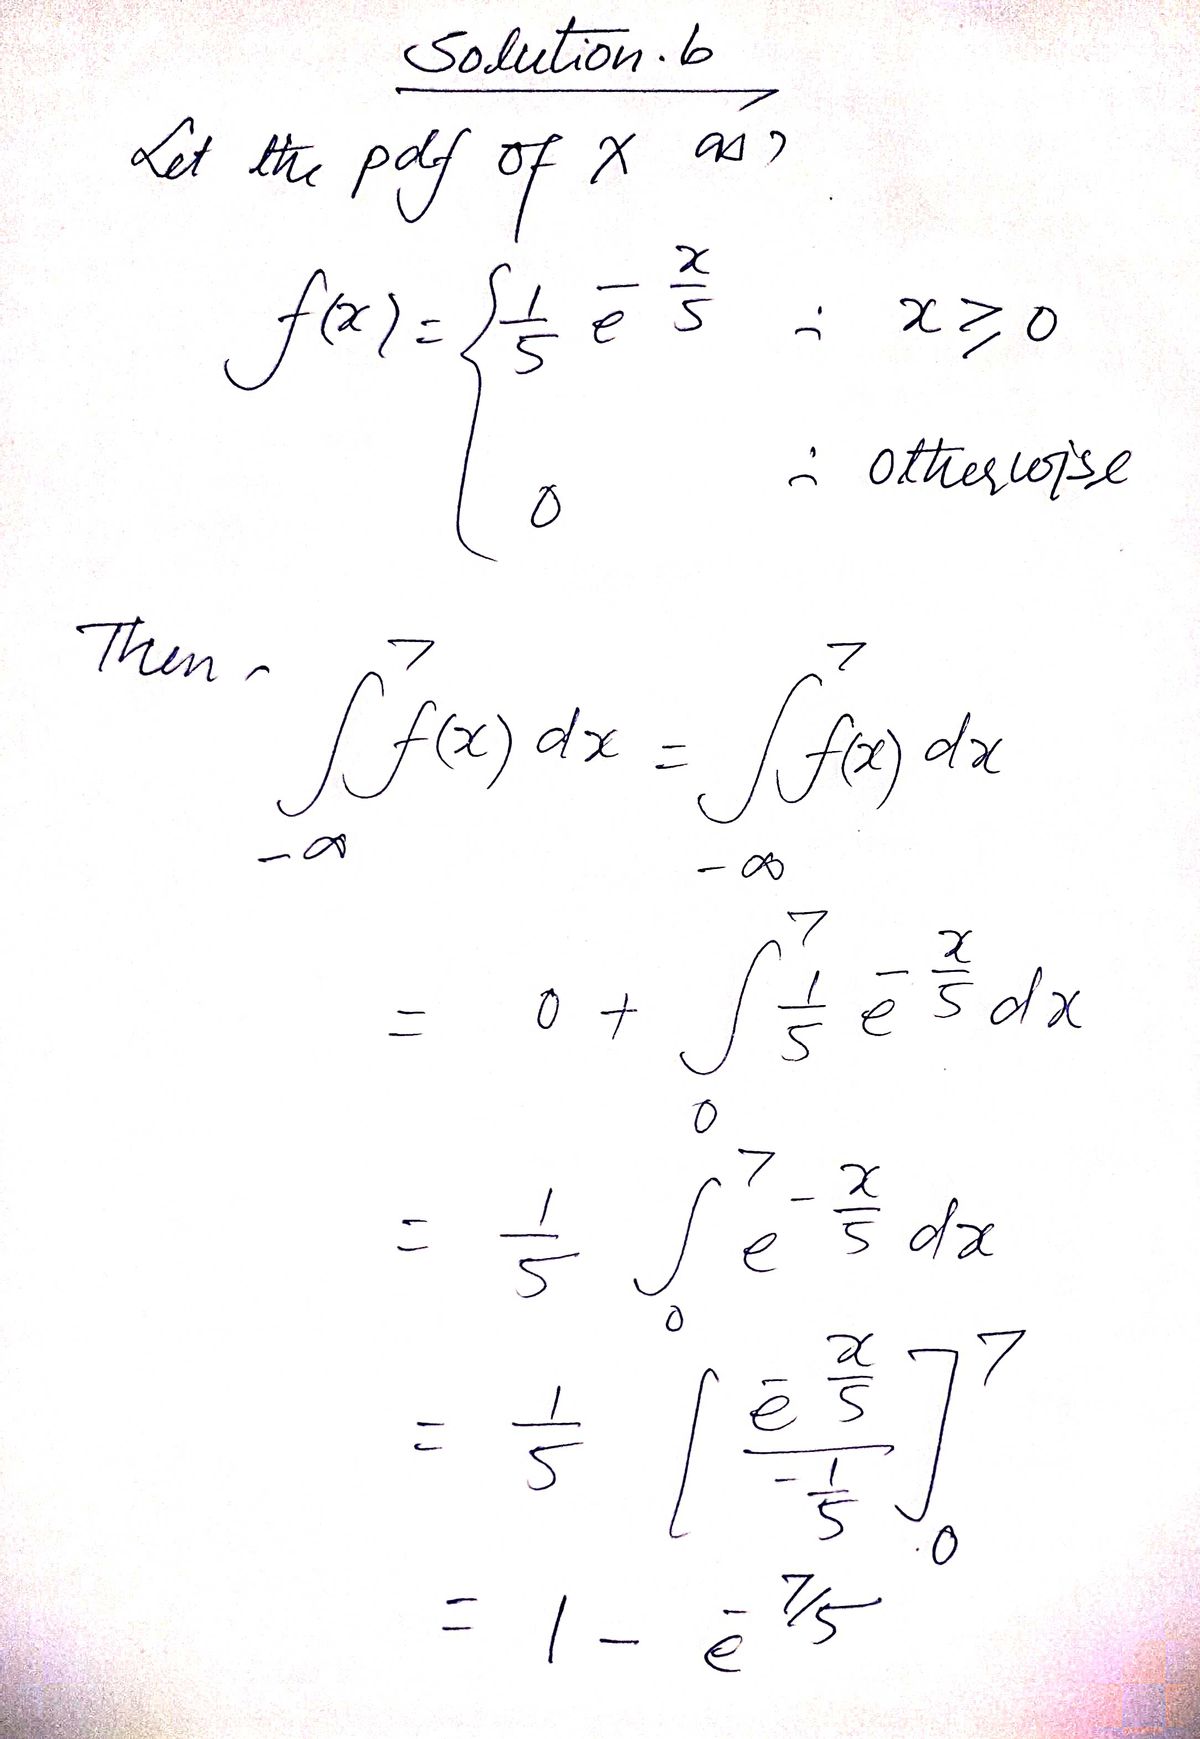 Solution.6
Let the pdf of X as,
f(x) = { 1/5 e^{-x/5} ; x ⩾ 0
0 ; otherwise
Then,
∫_{-∞}^{7} f(x) dx = ∫_{-∞}^{7} f(x) dx
= 0 + ∫_{0}^{7} 1/5 e^{-x/5} dx
= 1/5 ∫_{0}^{7} e^{-x/5} dx
= 1/5 [ e^{-x/5} / -1/5 ]_{0}^{7}
= 1 - e^{-7/5}